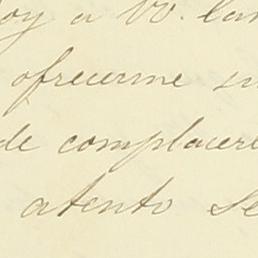 oy a VV.
ofrecerme su
de complacer
atento Se